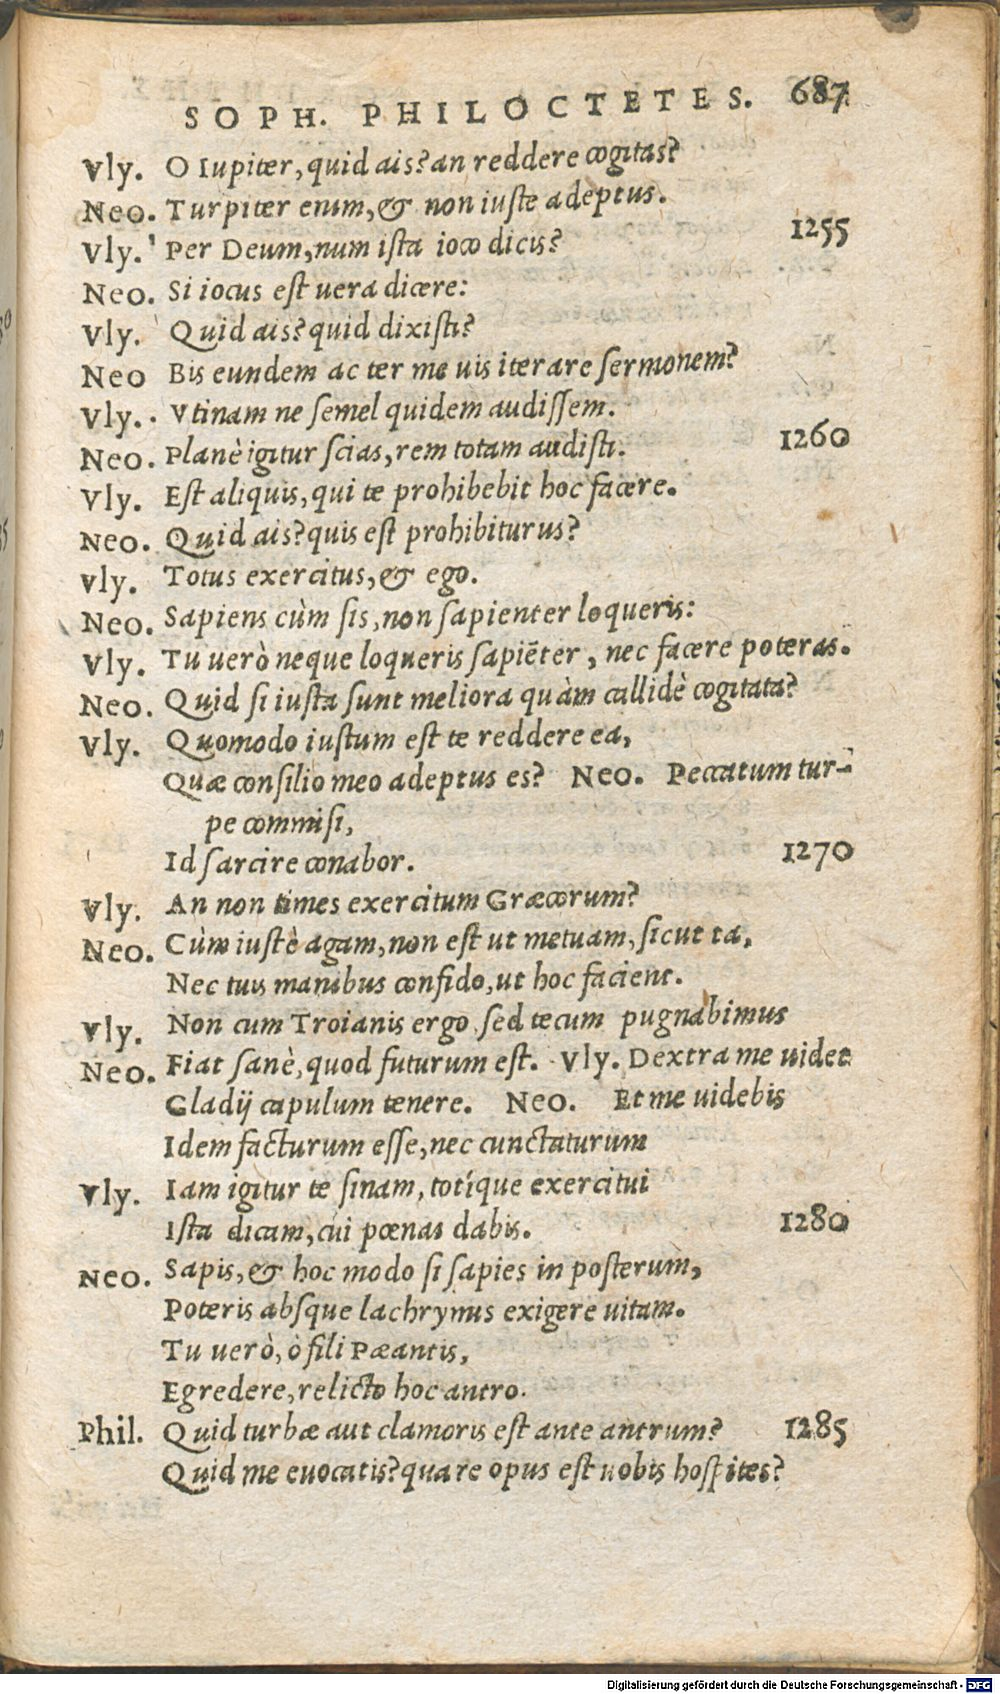 SOPH. PHILOCTETES. 687
Vly. O Iupiter, quid ais? an reddere cogitas?
Neo. Turpiter enim, & non iuste adeptus.
Vly. Per Deum, num ista ioco dicis? 1255
Neo. Si iocus est uera dicere:
Vly. Quid ais? quid dixisti?
Neo Bis eundem ac ter me uis iterare sermonem?
Vly. Vtinam ne semel quidem audissem.
Neo. Planè igitur scias, rem totam audisti. 1260
Vly. Est aliquis, qui te prohibebit hoc facere.
Neo. Quid ais? quis est prohibiturus?
Vly. Totus exercitus, & ego.
Neo. Sapiens cùm sis, non sapienter loqueris:
Vly. Tu uerò neque loqueris sapiēter, nec facere poteras.
Neo. Quid si iusta sunt meliora quàm callidè cogitata?
Vly. Quomodo iustum est te reddere ea,
Quæ consilio meo adeptus es? Neo. Peccatum tur-
pe commisi,
Id sarcire conabor. 1270
Vly. An non times exercitum Græcorum?
Neo. Cùm iustè agam, non est ut metuam, sicut ta,
Nec tuis manibus confido, ut hoc facient.
Vly. Non cum Troianis ergo sed tecum pugnabimus
Neo. Fiat sanè, quod futurum est. Vly. Dextra me uidet
Gladij capulum tenere. Neo. Et me uidebis
Idem facturum esse, nec cunctaturum
Vly. Iam igitur te sinam, totíque exercitui
Ista dicam, cui pœnas dabis. 1280
Neo. Sapis, & hoc modo si sapies in posterum,
Poteris absque lachrymis exigere uitam.
Tu uerò, ò fili Pæantis,
Egredere, relicto hoc antro.
Phil. Quid turbæ aut clamoris est ante antrum? 1285
Quid me euocatis? quare opus est uobis hospites?
Digitalisierung gefördert durch die Deutsche Forschungsgemeinschaft - DFG